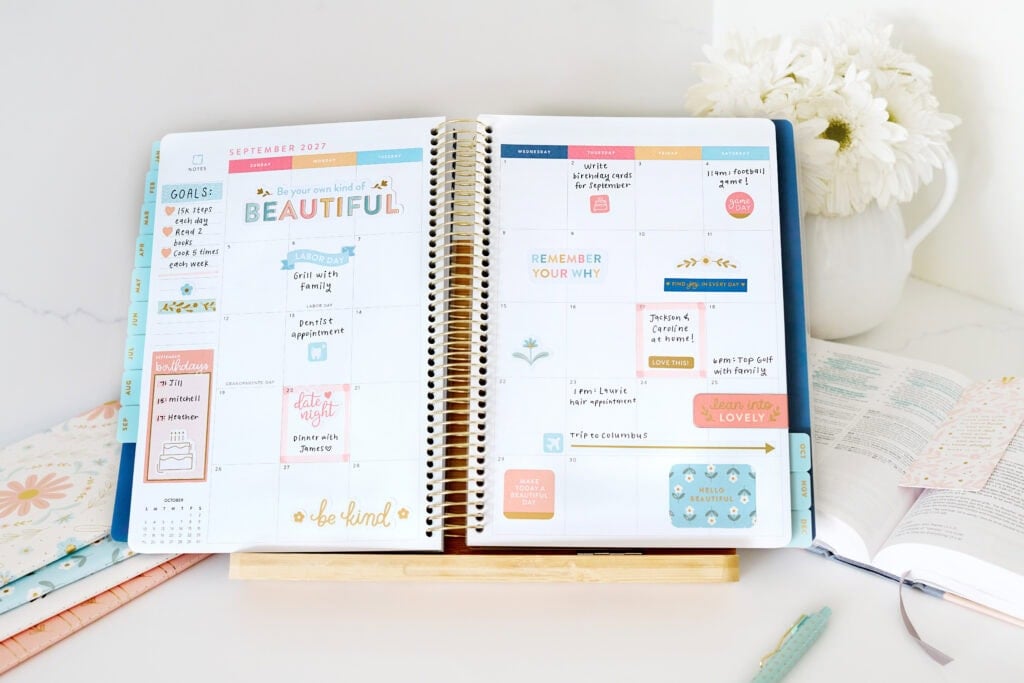 SEPTEMBER 2027
NOTES
SUNDAY MONDAY TUESDAY
GOALS:
15k steps
each day
Read 2
books
Cook 5 times
each week
Be your own kind of
BEAUTIFUL
5 6 7
LABOR DAY
Grill with
family
LABOR DAY
12 13 14
Dentist
appointment
SEPTEMBER
birthdays
7: Jill
15: mitchell
17: Heather
GRANDPARENTS DAY
19 20 21
date
night
Dinner with
James
26 27 28
be kind
OCTOBER
S M T W T F S
JAN
FEB
MAR
APR
MAY
JUN
JUL
AUG
SEP
WEDNESDAY THURSDAY FRIDAY SATURDAY
1 2 3 4
Write
birthday cards
for September
11am: football
game!
game
DAY
8 9 10 11
REMEMBER
YOUR WHY
FIND joy IN EVERY DAY
15 16 17 18
Jackson &
Caroline
at home!
LOVE THIS!
6pm: Top Golf
with family
22 23 24 25
1pm: Laurie
hair appointment
lean into
LOVELY
Trip to Columbus
29 30
MAKE
TODAY A
BEAUTIFUL
DAY
HELLO
BEAUTIFUL
OCT
NOV
DEC